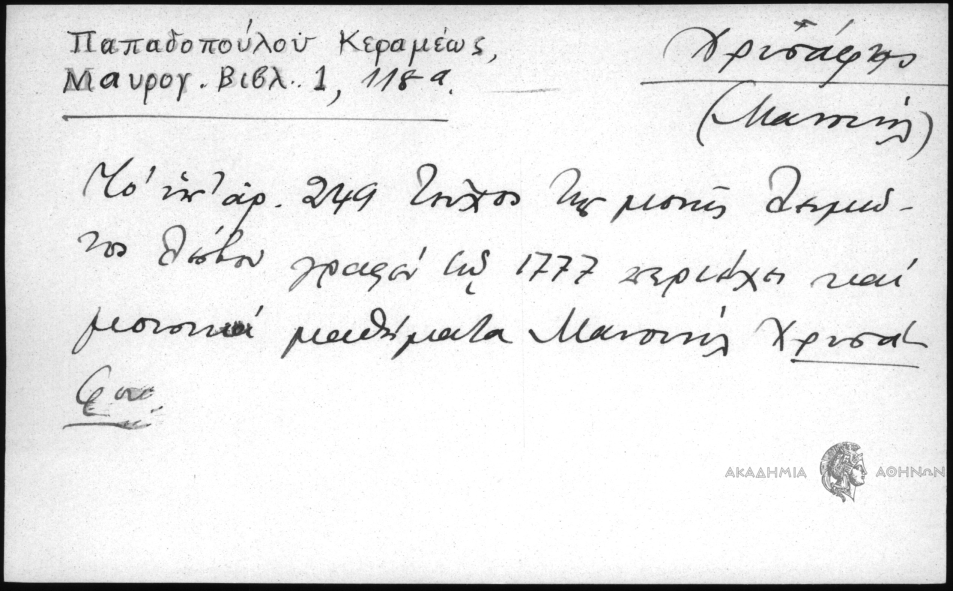 Παπαδοπούλου Κεραμέως,
Μαυρογ. Βιβλ. 1, 118 α.
Χρυσάφης
(Μανουήλ)
Τὸ ὑπ' ἀρ. 249 τεῦχος τῆς μονῆς Λειμῶ-
νος Λέσβου γραφὲν τῷ 1777 περιέχει καὶ
μουσικά μαθήματα Μανουήλ Χρυσά-
φου.
ΑΚΑΔΗΜΙΑ ΑΘΗΝΩΝ